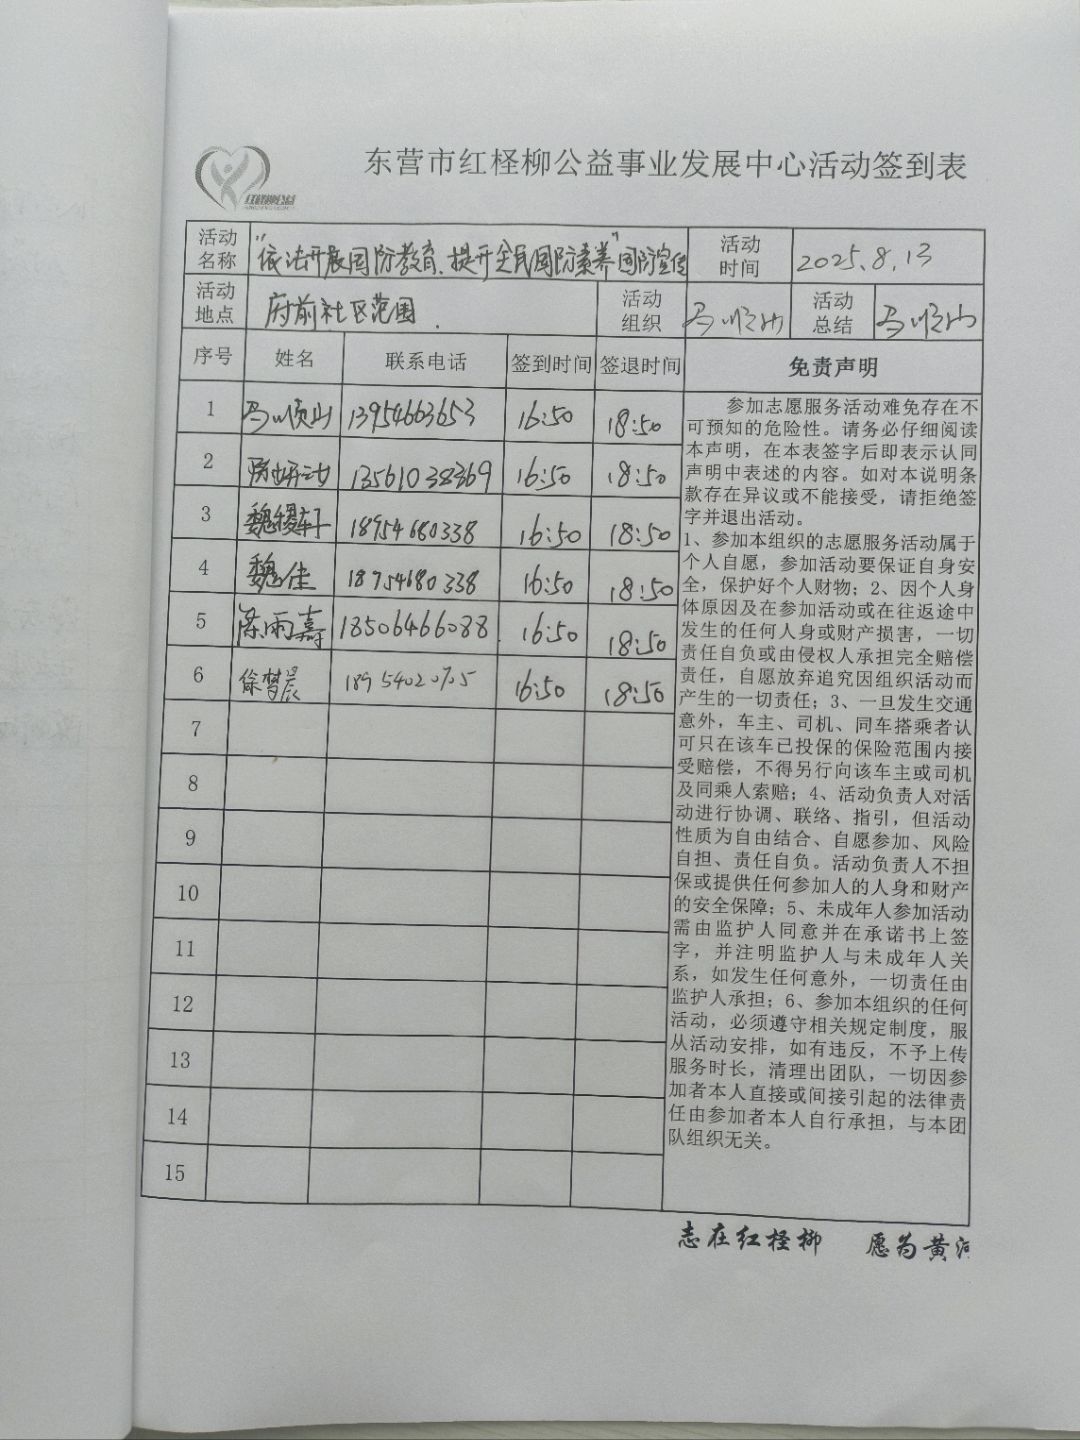 红柽柳公益
东营市红柽柳公益事业发展中心活动签到表
活动名称 "依法开展国防教育、提升全民国防素养"国防宣传 活动时间 2025.8.13
活动地点 府前社区范围. 活动组织 马顺山 活动总结 马顺山
序号 姓名 联系电话 签到时间 签退时间 免责声明
1 马顺山 13954663653 16:50 18:50
2 13561038369 16:50 18:50
3 魏稷轩 18954680338 16:50 18:50
4 魏佳 18954680338 16:50 18:50
5 陈雨嘉 18506466088 16:50 18:50
6 徐梦晨 18954020705 16:50 18:50
7
8
9
10
11
12
13
14
15
参加志愿服务活动难免存在不
可预知的危险性。请务必仔细阅读
本声明，在本表签字后即表示认同
声明中表述的内容。如对本说明条
款存在异议或不能接受，请拒绝签
字并退出活动。
1、参加本组织的志愿服务活动属于
个人自愿，参加活动要保证自身安
全，保护好个人财物；2、因个人身
体原因及在参加活动或在往返途中
发生的任何人身或财产损害，一切
责任自负或由侵权人承担完全赔偿
责任，自愿放弃追究因组织活动而
产生的一切责任；3、一旦发生交通
意外，车主、司机、同车搭乘者认
可只在该车已投保的保险范围内接
受赔偿，不得另行向该车主或司机
及同乘人索赔；4、活动负责人对活
动进行协调、联络、指引，但活动
性质为自由结合、自愿参加、风险
自担、责任自负。活动负责人不担
保或提供任何参加人的人身和财产
的安全保障；5、未成年人参加活动
需由监护人同意并在承诺书上签
字，并注明监护人与未成年人关
系，如发生任何意外，一切责任由
监护人承担；6、参加本组织的任何
活动，必须遵守相关规定制度，服
从活动安排，如有违反，不予上传
服务时长，清理出团队，一切因参
加者本人直接或间接引起的法律责
任由参加者本人自行承担，与本团
队组织无关。
志在红柽柳 愿为黄河